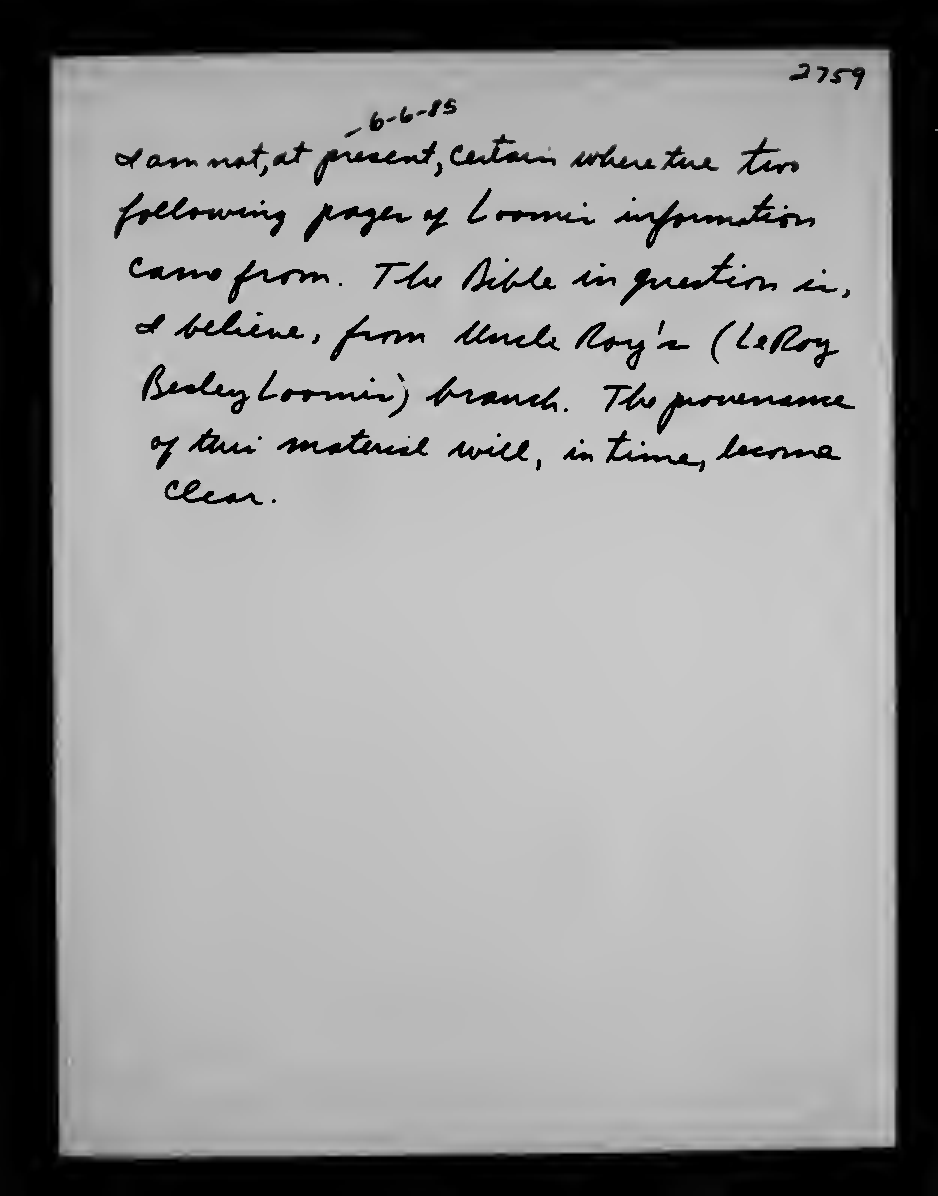 2759
-6-6-85
I am not, at present, certain where the two
following pages of Loomis information
came from. The Bible in question is,
I believe, from Uncle Roy's (LeRoy
Besley Loomis) branch. The provenance
of this material will, in time, become
clear.